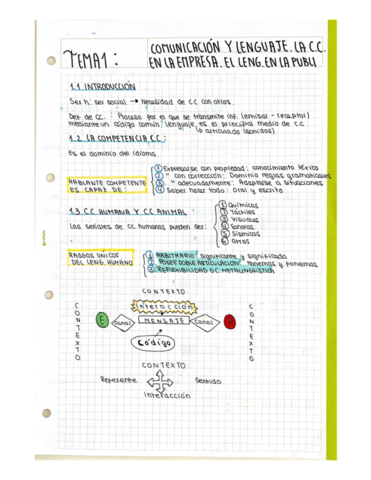 TEMA 1 :
COMUNICACIÓN Y LENGUAJE. LA C.C.
EN LA EMPRESA. EL LENG. EN LA PUBLI
1.1 INTRODUCCIÓN
Ser h. ser social → Necesidad de C.C con otros.
Def. de CC. : Proceso por el que se transmite inf. (emisor - receptor)
mediante un código común. Lenguaje es el principal medio de CC
↳ articulado (sonidos)
1.2 LA COMPETENCIA CC :
Es el dominio del idioma
HABLANTE COMPETENTE
ES CAPAZ DE :
1 Expresarse con propiedad : conocimiento léxico
2 " con corrección : Dominio reglas gramaticales
3 " adecuadamente : Adaptarse a situaciones
4 Saber hacer todo : Oral y escrito
1.3 C.C HUMANA Y CC ANIMAL
Las señales de CC humanas pueden ser :
1 Químicas
2 Táctiles
3 Visuales
4 Sonoras
5 Sísmicas
6 Otras
RASGOS ÚNICOS
DEL LENG. HUMANO
1 ARBITRARIO : Significante y significado
2 POSEE DOBLE ARTICULACIÓN : Monemas y fonemas
3 REFLEXIBILIDAD O C. METALINGÜÍSTICA
CONTEXTO
Interacción
CONTEXTO
E
Canal
MENSAJE
Canal
R
CONTEXTO
Código
CONTEXTO
Referente
Sentido
Interacción